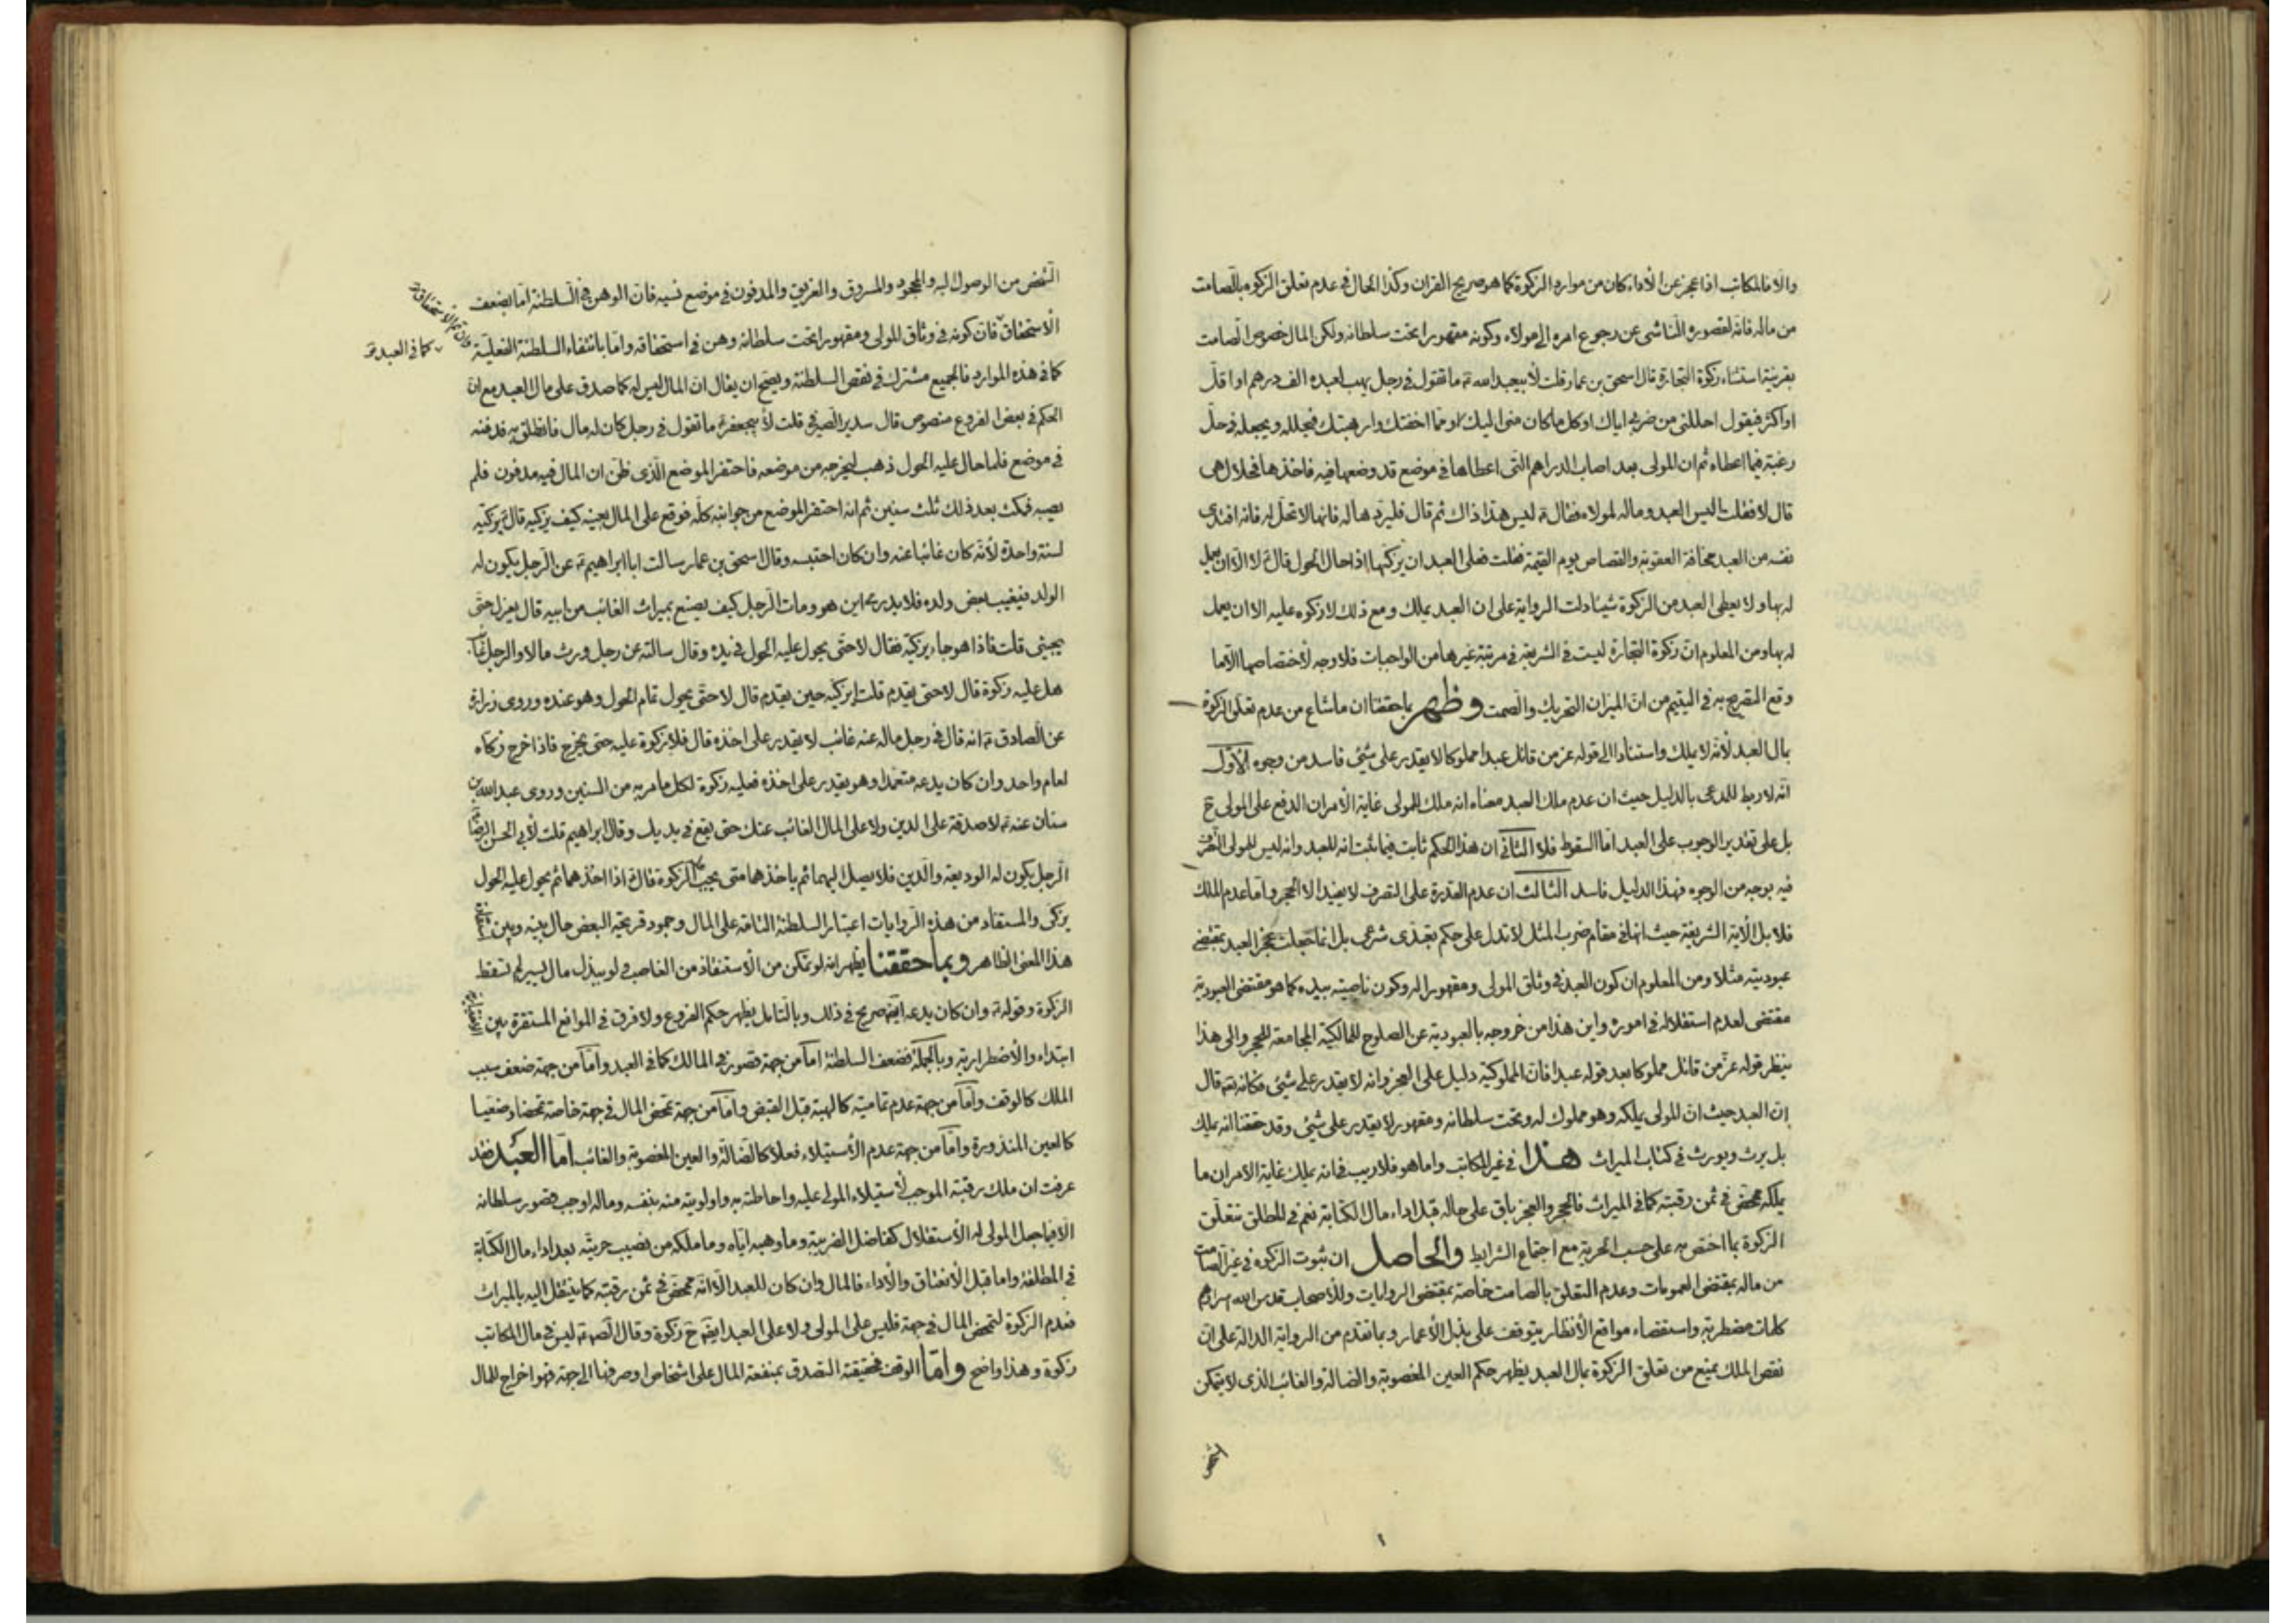 والا فالمكاتب اذا عجز عن الأداء كان من موارد الزكوة كما هو صريح القران وكذا الحال في عدم تعلق الزكوة بالصامت
من ماله فانه لقصوره الناشى عن رجوع امره الى مولاه وكونه مقهورا تحت سلطانه ولكن المال خصوص الصامت
بقرينة استثناء زكوة التجارة قال اسحق بن عمار قلت لأبيعبد الله ع ما تقول في رجل يهب لعبده الف درهم او اقل
او اكثر فيقول احللنى من ضربى اياك او كل ما كان منى اليك او مما اخفتك وارهبتك فيحلله ويجعله في حل
رغبة فيما اعطاه ثم ان المولى بعد اصاب الدراهم التى اعطاها في موضع قد وضعها فيه فاخذها فحلال هى
قال لا فقلت اليس العبد وماله لمولاه فقال ع ليس هذا ذاك ثم قال فليردها له فانها لا تحل له فانه افتدى
نفسه من العبد مخافة العقوبة والقصاص يوم القيمة فقلت فعلى العبد ان يزكيها اذا حال الحول قال ع لا الا ان يعمل
له بها ولا يعطى العبد من الزكوة شيئا دلت الرواية على ان العبد يملك ومع ذلك لا زكوة عليه الا ان يعمل
له بها ومن المعلوم ان زكوة التجارة ليست في الشريعة في مرتبة غيرها من الواجبات فلا وجه لأختصاصها الا ما
وقع التصريح به في اليتيم من ان الميزان التحريك والصمت وظهر بما حققنا ان ما شاع من عدم تعلق الزكوة
بمال العبد لأنه لا يملك واستنادا الى قوله عز من قائل عبدا مملوكا لا يقدر على شيئ فاسد من وجوه الأول
انه لا ربط للمدعى بالدليل حيث ان عدم ملك العبد معناه انه ملك للمولى غاية الأمر ان الدفع على المولى ح
بل على تقدير الوجوب على العبد اما السقوط فلا الثاني ان هذا الحكم ثابت فيما ثبت انه للعبد وانه ليس للمولى التصرف
فيه بوجه من الوجوه فهذا الدليل فاسد الثالث ان عدم القدرة على التصرف لا يفيد الا الحجر واما عدم الملك
فلا بل الأية الشريفة حيث انها في مقام ضرب المثل لا تدل على حكم تعبدى شرعى بل انما جعلت عجز العبد بمقتضى
عبوديته مثلا ومن المعلوم ان كون العبد في وثاق المولى ومقهورا له وكون ناصيته بيده كما هو مقتضى العبودية
مقتضى لعدم استقلاله في اموره واين هذا من خروجه بالعبودية عن الصلوح للمالكية المجامعة للحجر والى هذا
ينظر قوله عز من قائل مملوكا بعد قوله عبدا فان المملوكية دليل على العجز وانه لا يقدر على شيئ فكانه تع قال
ان العبد حيث ان المولى يملكه وهو مملوك له وتحت سلطانه ومقهور لا يقدر على شيئ وقد حققنا انه يملك
بل يرث ويورث في كتاب الميراث هذا في غير المكاتب واما هو فلا ريب في انه يملك غاية الامر ان ما
يملكه متمحض في ثمن رقبته كما في الميراث فالحجر والعجز باق على حاله قبل اداء مال الكتابة نعم في المطلق تتعلق
الزكوة بما اختص به على حسب الحرية مع اجتماع الشرايط والحاصل ان ثبوت الزكوة في غير الصامت
من ماله بمقتضى العمومات وعدم التعلق بالصامت خاصة بمقتضى الروايات وللأصحاب قدس الله اسرارهم
كلمات مضطربة واستقصاء مواقع الأنظار يتوقف على بذل الأعمار وبما تقدم من الرواية الدالة على ان
نقص الملك يمنع من تعلق الزكوة بمال العبد يظهر حكم العين المغصوبة والضالة والغائب الذى لا يتمكن
الشخص
الشخص من الوصول اليه والمجحود والمسروق والغريق والمدفون في موضع نسيه فان الوهن في السلطنة اما بضعف
الأستحقاق فان كونه في وثاق المولى ومقهورا تحت سلطانه وهن في استحقاقه واما بانتفاء السلطنة الفعلية
كما في العبد
كما في هذه الموارد فالجميع مشترك في نقص السلطنة ويصح ان يقال ان المال ليس له كما صدق على مال العبد مع ان
الحكم في بعض الفروع منصوص قال سدير الصيرفي قلت لأبيجعفر ع ما تقول في رجل كان له مال فانطلق به فدفنه
في موضع فلما حال عليه الحول ذهب ليخرجه من موضعه فاحتفر الموضع الذى ظن ان المال فيه مدفون فلم
يصبه فمكث بعد ذلك ثلث سنين ثم انه احتفر الموضع من جوانبه كله فوقع على المال بعينه كيف يزكيه قال ع يزكيه
لسنة واحدة لأنه كان غائبا عنه وان كان احتبسه وقال اسحق بن عمار سالت ابا ابراهيم ع عن الرجل يكون له
الولد فيغيب بعض ولده فلا يدرى اين هو ومات الرجل كيف يصنع بميراث الغائب من ابيه قال يعزل حتى
يجيئى قلت فاذا هو جاء يزكيه فقال لا حتى يحول عليه الحول في يده وقال سالته عن رجل ورث مالا والرجل غائب
هل عليه زكوة قال لا حتى يقدم قلت ايزكيه حين يقدم قال لا حتى يحول تمام الحول وهو عنده وروى زرارة
عن الصادق ع انه قال في رجل ماله عنه غائب لا يقدر على اخذه قال فلا زكوة عليه حتى يخرج فاذا خرج زكاه
لعام واحد وان كان يدعه متعمدا وهو يقدر على اخذه فعليه زكوة لكل ما مر به من السنين وروى عبد الله بن
سنان عنه ع لا صدقة على الدين ولا على المال الغائب عنك حتى يقع في يديك وقال ابراهيم قلت لأبي الحسن الرضا
الرجل يكون له الوديعة والدين فلا يصل اليهما ثم ياخذهما متى يجب الزكوة قال ع اذا اخذهما ثم يحول عليه الحول
يزكى والمستفاد من هذه الروايات اعتبار السلطنة التامة على المال وجمود قريحة البعض حال بينه وبين
هذا المعنى الظاهر وبما حققنا يظهر انه لو تمكن من الأستنقاذ من الغاصب ولو ببذل مال يسير لم تسقط
الزكوة وقوله ع وان كان يدعه ايضا صريح في ذلك وبالتامل يظهر حكم الفروع ولا فرق في الموانع المستقرة بين
ابتداء والأضطرارية وبالجملة فضعف السلطنة اما من جهة قصور في المالك كما في العبد واما من جهة ضعف سبب
الملك كالوقف واما من جهة عدم تماميته كالهبة قبل القبض واما من جهة تمحض المال في جهة خاصة تمحضا وضعيا
كالعين المنذورة واما من جهة عدم الأستيلاء فعلا كالضالة والعين المغصوبة والغائب اما العبد فقد
عرفت ان ملك رقبته الموجب لأستيلاء المولى عليه واحاطته به واولويته منه بنفسه وماله اوجب قصور سلطانه
الا فيما جعل المولى له الأستقلال كفاضل الضريبة وما وهبه اياه وما ملكه من نصيب حريته بعد اداء مال الكتابة
في المطلقة واما قبل الأنعتاق والأداء فالمال وان كان للعبد الا انه متمحض في ثمن رقبته كما ينتقل اليه بالميراث
فعدم الزكوة لتمحض المال في جهة فليس على المولى ولا على العبد ايضا ح زكوة وقال الص ع ليس في مال المكاتب
زكوة وهذا واضح واما الوقف فحقيقته التصدق بمنفعة المال على اشخاص او صرفها الى جهة فهو اخراج للمال